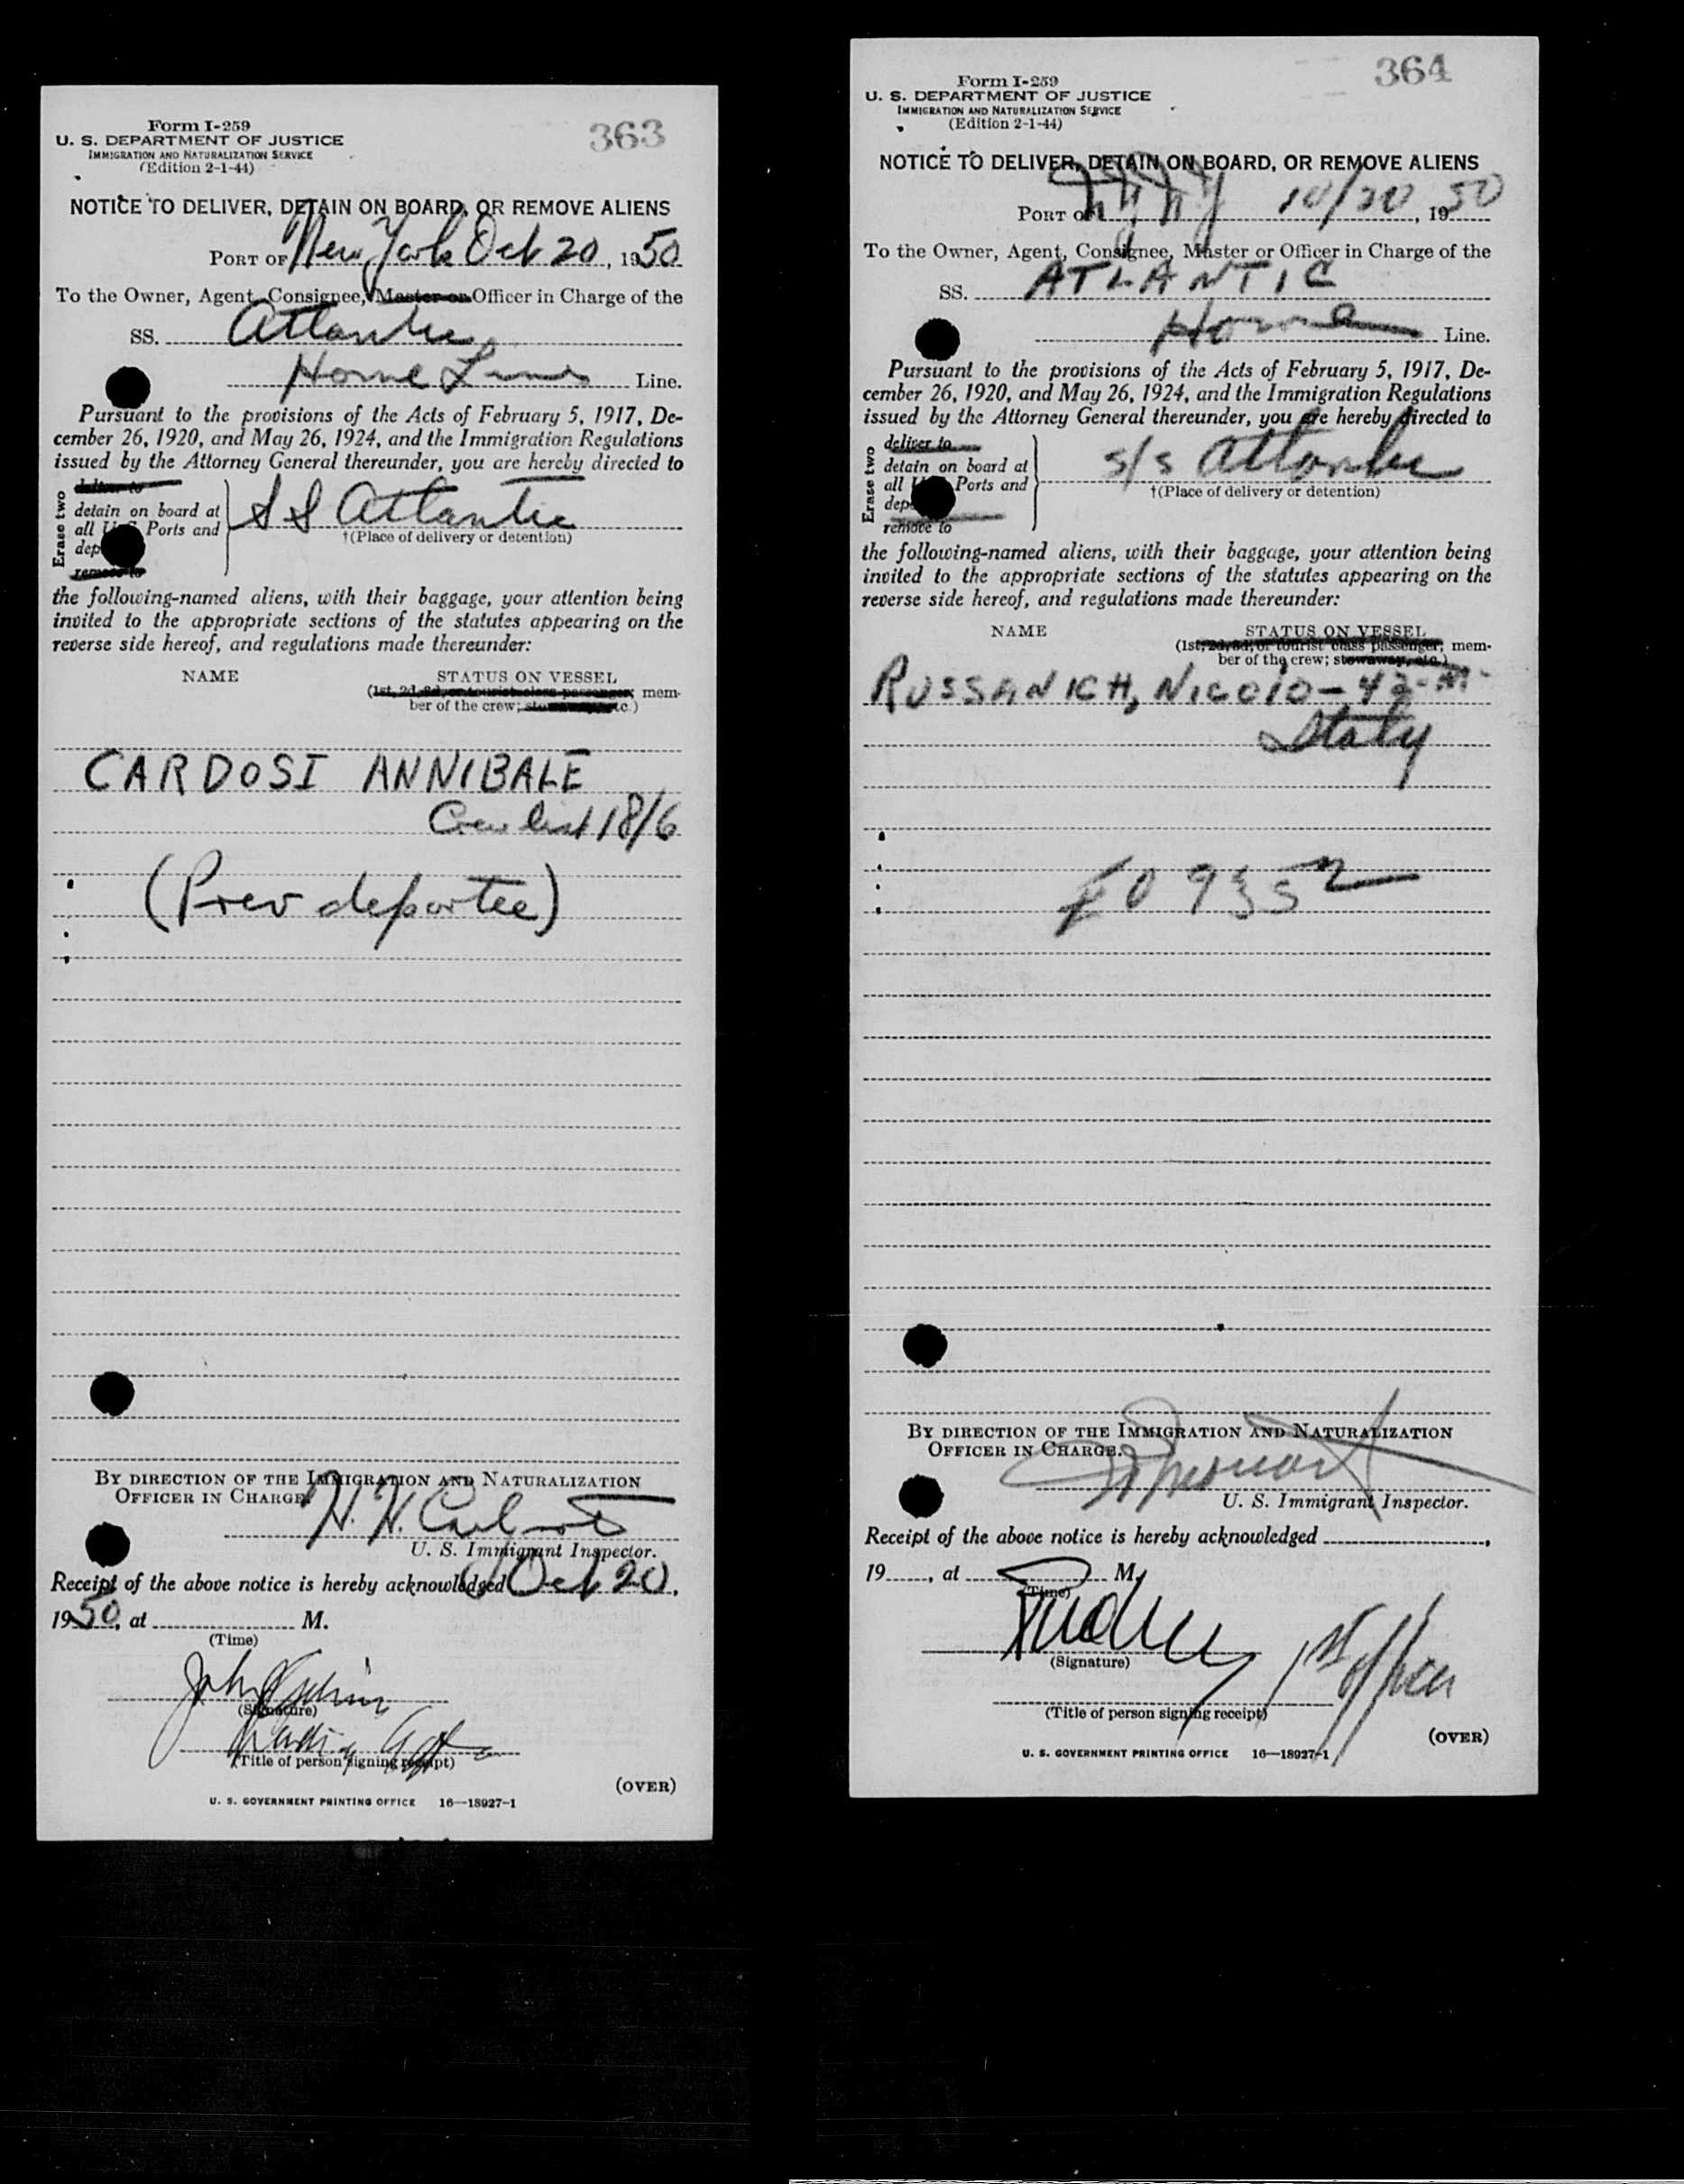 363
Form I-259
U. S. DEPARTMENT OF JUSTICE
IMMIGRATION AND NATURALIZATION SERVICE
(Edition 2-1-44)
NOTICE TO DELIVER, DETAIN ON BOARD, OR REMOVE ALIENS
PORT OF New York Oct 20, 1950
To the Owner, Agent, Consignee, Master or Officer in Charge of the
SS. Atlantic
Home Lines Line.
Pursuant to the provisions of the Acts of February 5, 1917, De-
cember 26, 1920, and May 26, 1924, and the Immigration Regulations
issued by the Attorney General thereunder, you are hereby directed to
Erase two
deliver to
detain on board at
all U. S. Ports and
dep
remove to
SS Atlantic
†(Place of delivery or detention)
the following-named aliens, with their baggage, your attention being
invited to the appropriate sections of the statutes appearing on the
reverse side hereof, and regulations made thereunder:
NAME STATUS ON VESSEL
(1st, 2d, 3d, or tourist class passenger; mem-
ber of the crew; stowaway, etc.)
CARDOSI ANNIBALE
Crew list 18/6
(Prev deportee)
BY DIRECTION OF THE IMMIGRATION AND NATURALIZATION
OFFICER IN CHARGE.
H. H.
U. S. Immigrant Inspector.
Receipt of the above notice is hereby acknowledged Oct 20,
1950, at M.
(Time)
John
(Signature)
(Title of person signing receipt)
(OVER)
U. S. GOVERNMENT PRINTING OFFICE 16—18927-1
364
Form I-259
U. S. DEPARTMENT OF JUSTICE
IMMIGRATION AND NATURALIZATION SERVICE
(Edition 2-1-44)
NOTICE TO DELIVER, DETAIN ON BOARD, OR REMOVE ALIENS
PORT OF N Y N Y 10/20, 1950
To the Owner, Agent, Consignee, Master or Officer in Charge of the
SS. ATLANTIC
Home Line.
Pursuant to the provisions of the Acts of February 5, 1917, De-
cember 26, 1920, and May 26, 1924, and the Immigration Regulations
issued by the Attorney General thereunder, you are hereby directed to
Erase two
deliver to
detain on board at
all U. S. Ports and
dep
remove to
s/s Atlantic
†(Place of delivery or detention)
the following-named aliens, with their baggage, your attention being
invited to the appropriate sections of the statutes appearing on the
reverse side hereof, and regulations made thereunder:
NAME STATUS ON VESSEL
(1st, 2d, 3d, or tourist class passenger; mem-
ber of the crew; stowaway, etc.)
RUSSANICH, NICOLO - 42 - M
Italy
BY DIRECTION OF THE IMMIGRATION AND NATURALIZATION
OFFICER IN CHARGE.
U. S. Immigrant Inspector.
Receipt of the above notice is hereby acknowledged ,
19 , at M.
(Time)
(Signature)
1st officer
(Title of person signing receipt)
(OVER)
U. S. GOVERNMENT PRINTING OFFICE 16—18927-1